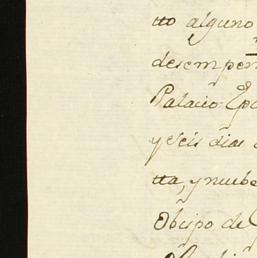 tto alguno
desempeñ
Palacio Epi
y seis dias
tta, y nuebe
Obispo de